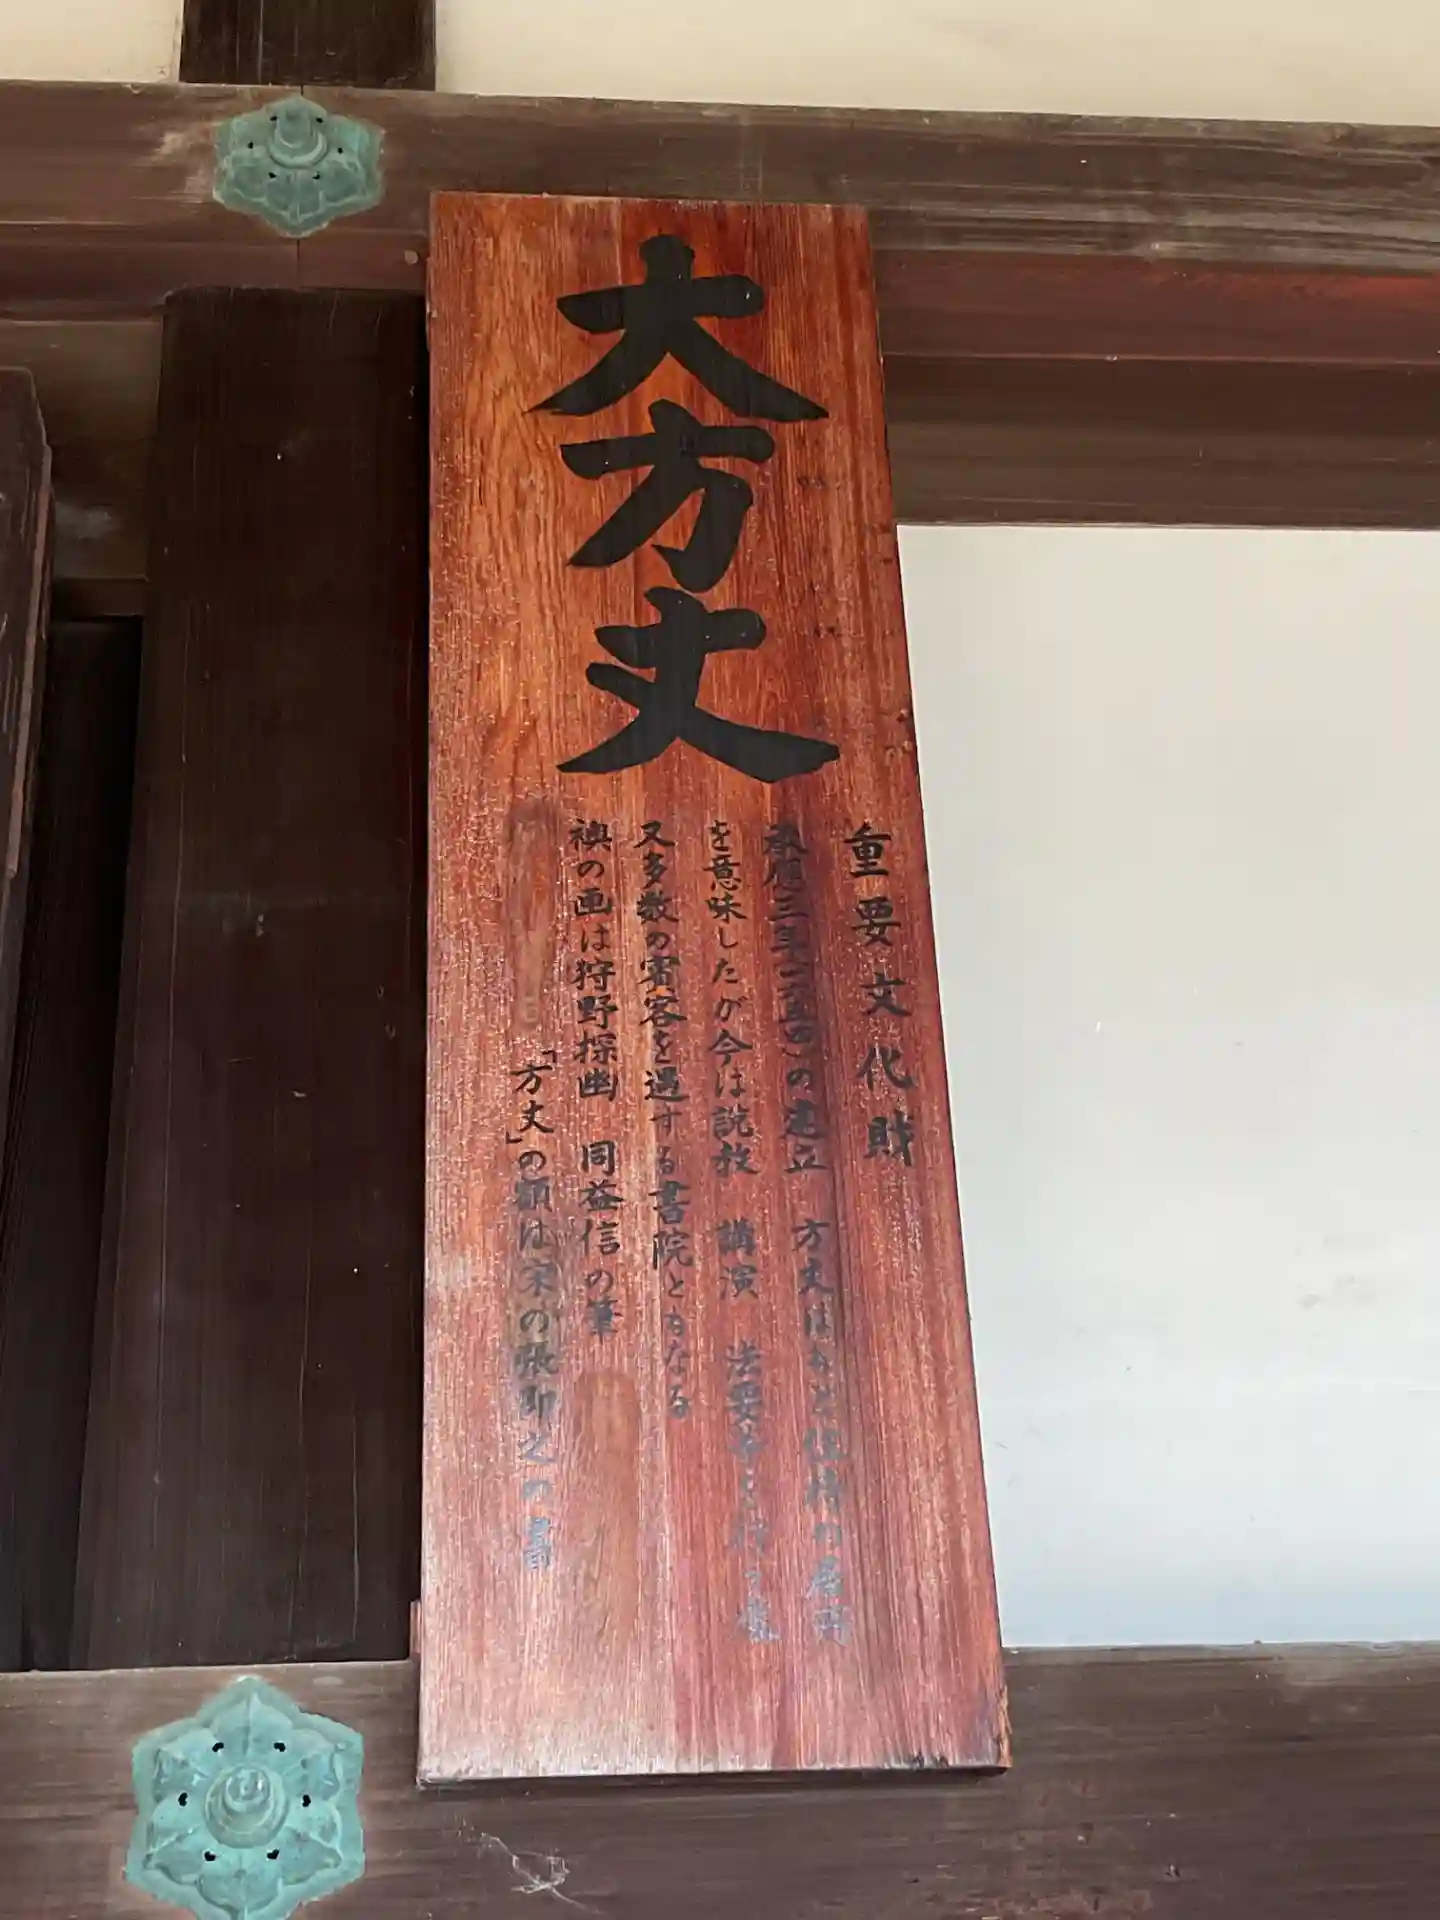 大方丈
重要文化財
承應三年(一六五四)の建立　方丈はもと住持の居所
を意味したが今は説教　講演　法要等を行う處
又多数の賓客を遇する書院ともなる
襖の画は狩野探幽　同益信の筆
「方丈」の額は宋の張即之の書